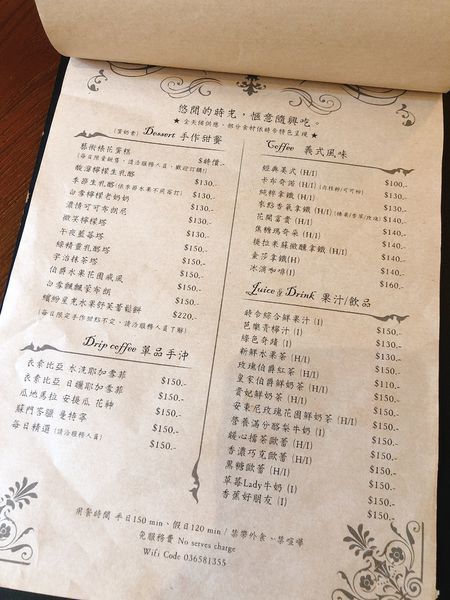 悠閒的時光，愜意隨興吃。
★全天候供應，部分食材依時令特色呈現★
(蛋奶素) Dessert 手作甜蜜
藝術棧花蛋糕 $時價.-
(每日限量銷售，請洽服務人員，歡迎訂購!)
酸溜檸檬生乳酪 $130.-
季節生乳酪(依季節水果不同為訂) $130.-
白雪檸檬老奶奶 $130.-
濃情可可布朗尼 $130.-
微笑檸檬塔 $130.-
午夜藍莓塔 $130.-
綠精靈乳酪塔 $150.-
宇治抹茶塔 $150.-
伯爵水果花園戚風 $150.-
白雪飄飄蒙布朗 $150.-
繽紛星克水果舒芙蕾鬆餅 $220.-
(每日限定手作甜點不定，請洽服務人員了解)
Drip coffee 單品手沖
衣索比亞 水洗耶加雪菲 $150.-
衣索比亞 日曬耶加雪菲 $150.-
瓜地馬拉 安提瓜 花神 $150.-
蘇門答臘 曼特寧 $150.-
每日精選 (請洽服務人員) $150.-
Coffee 義式風味
經典美式 (H/I) $100.-
卡布奇諾 (H/I) (肉桂粉/可可粉) $130.-
純粹拿鐵 (H/I) $130.-
來點香氣拿鐵 (H/I) (榛果/香草/玫瑰) $140.-
花開富貴 (H/I) $140.-
焦糖瑪奇朵 (H/I) $140.-
提拉米蘇微醺拿鐵 (H/I) $140.-
金莎拿鐵(H) $140.-
冰滴咖啡(I) $160.-
Juice & Drink 果汁/飲品
時令綜合鮮果汁 (I) $150.-
芭樂青檸汁 (I) $130.-
綠色奇蹟 (I) $130.-
新鮮水果茶 (H/I) $130.-
玫瑰伯爵紅茶 (H/I) $150.-
皇家伯爵鮮奶茶 (H/I) $110.-
貴妃鮮奶茶 (H/I) $150.-
安東尼玫瑰花園鮮奶茶 (H/I) $150.-
營養滿分酪梨牛奶 (I) $150.-
鍾心擂茶歐蕾 (H/I) $150.-
香濃巧克歐蕾 (H/I) $150.-
黑糖歐蕾 (H/I) $150.-
草莓Lady牛奶 (I) $150.-
香蕉好朋友 (I) $150.-
用餐時間 平日150 min、假日120 min / 禁帶外食、禁喧嘩
免服務費 No serves charge
Wifi Code 036581355